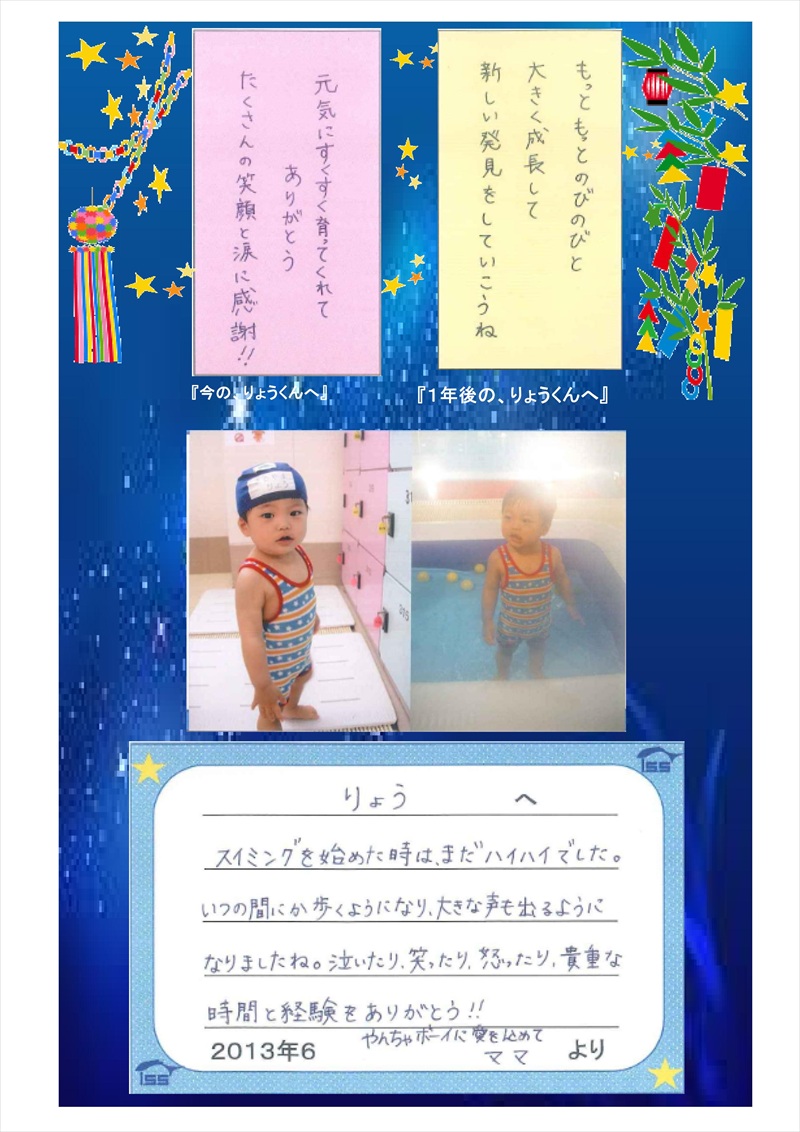 元気にすくすく育ってくれて
ありがとう
たくさんの笑顔と涙に感謝!!
もっともっとのびのびと
大きく成長して
新しい発見をしていこうね
『今の、りょうくんへ』
『1年後の、りょうくんへ』
りょう
ISS
りょう へ
スイミングを始めた時は、まだハイハイでした。
いつの間にか歩くようになり、大きな声も出るように
なりましたね。泣いたり、笑ったり、怒ったり、貴重な
時間と経験をありがとう!!
やんちゃボーイに愛を込めて
2013年6 ママ より
ISS